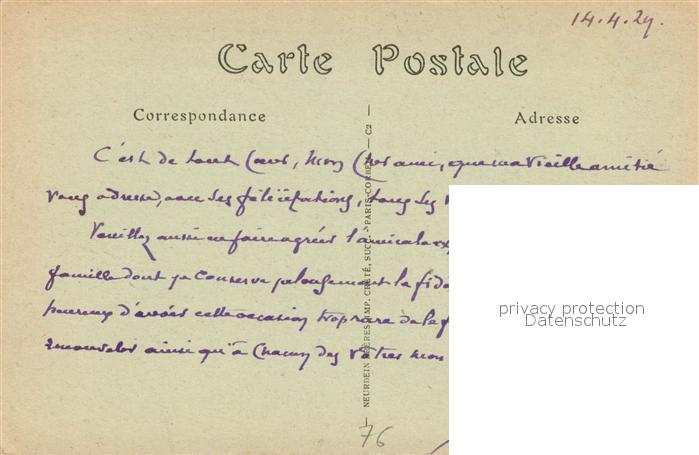 14.4.29.
Carte Postale
Correspondance
Adresse
C'est de tout Coeur, Mon Cher ami, que ma vieille amitié
vous adresse, avec ses félicitations, tous ses
Veuillez aussi en faire agréer l'amicale
famille dont je Conserve
heureux d'avoir cette occasion trop rare de la
renouveler ainsi qu'à Chacun des vôtres mon
NEURDEIN FRÈRES IMP. CRÉTÉ, SUCC. PARIS-CORBEIL — C2 —
76
privacy protection
Datenschutz